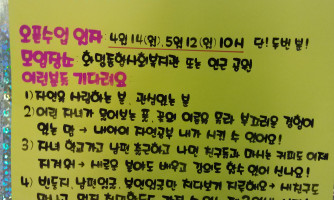 오픈수업 일자 : 4월 14(월), 5월 12(월) 10시 단! 두번 뿐!
모임장소 : 화명종합사회복지관 또는 인근 공원
이런분들 기다려요
1) 자연을 사랑하는 분, 관심있는 분
2) 어린 자녀가 물어보는 풀, 꽃의 이름을 몰라 부끄러운 경험이
있는 맘 → 내아이 자연공부 내가 시킬 수 있어요!
3) 자녀 학교가고 남편 출근하고 나면 친구들과 마시는 커피도 이제
지겨워 → 새로운 분야도 배우고 강의도 할수 있어 신나요!
4) 반듯지, 남편있고, 부인있지만 쳐다보기 지긋하요 → 새친구도